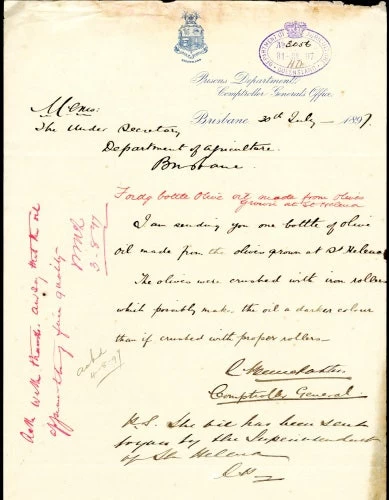 DEPARTMENT OF AGRICULTURE
QUEENSLAND
Prisons Department
Comptroller General's Office,
Brisbane 30th July 1897.
Memo:
The Under Secretary
Department of Agriculture.
Brisbane.
Fordg bottle Olive oil made from olives
grown at St Helena
I am sending you one bottle of olive
oil made from the olives grown at St Helena
The olives were crushed with iron rollers
which possibly makes the oil a darker colour
than if crushed with proper rollers.
Comptroller General.
P.S. The oil has been sent
to you by the Superintendent
of St Helena
Ack with thanks. and say that the oil
is of fine quality
3-8-97
ackd
4-8-97